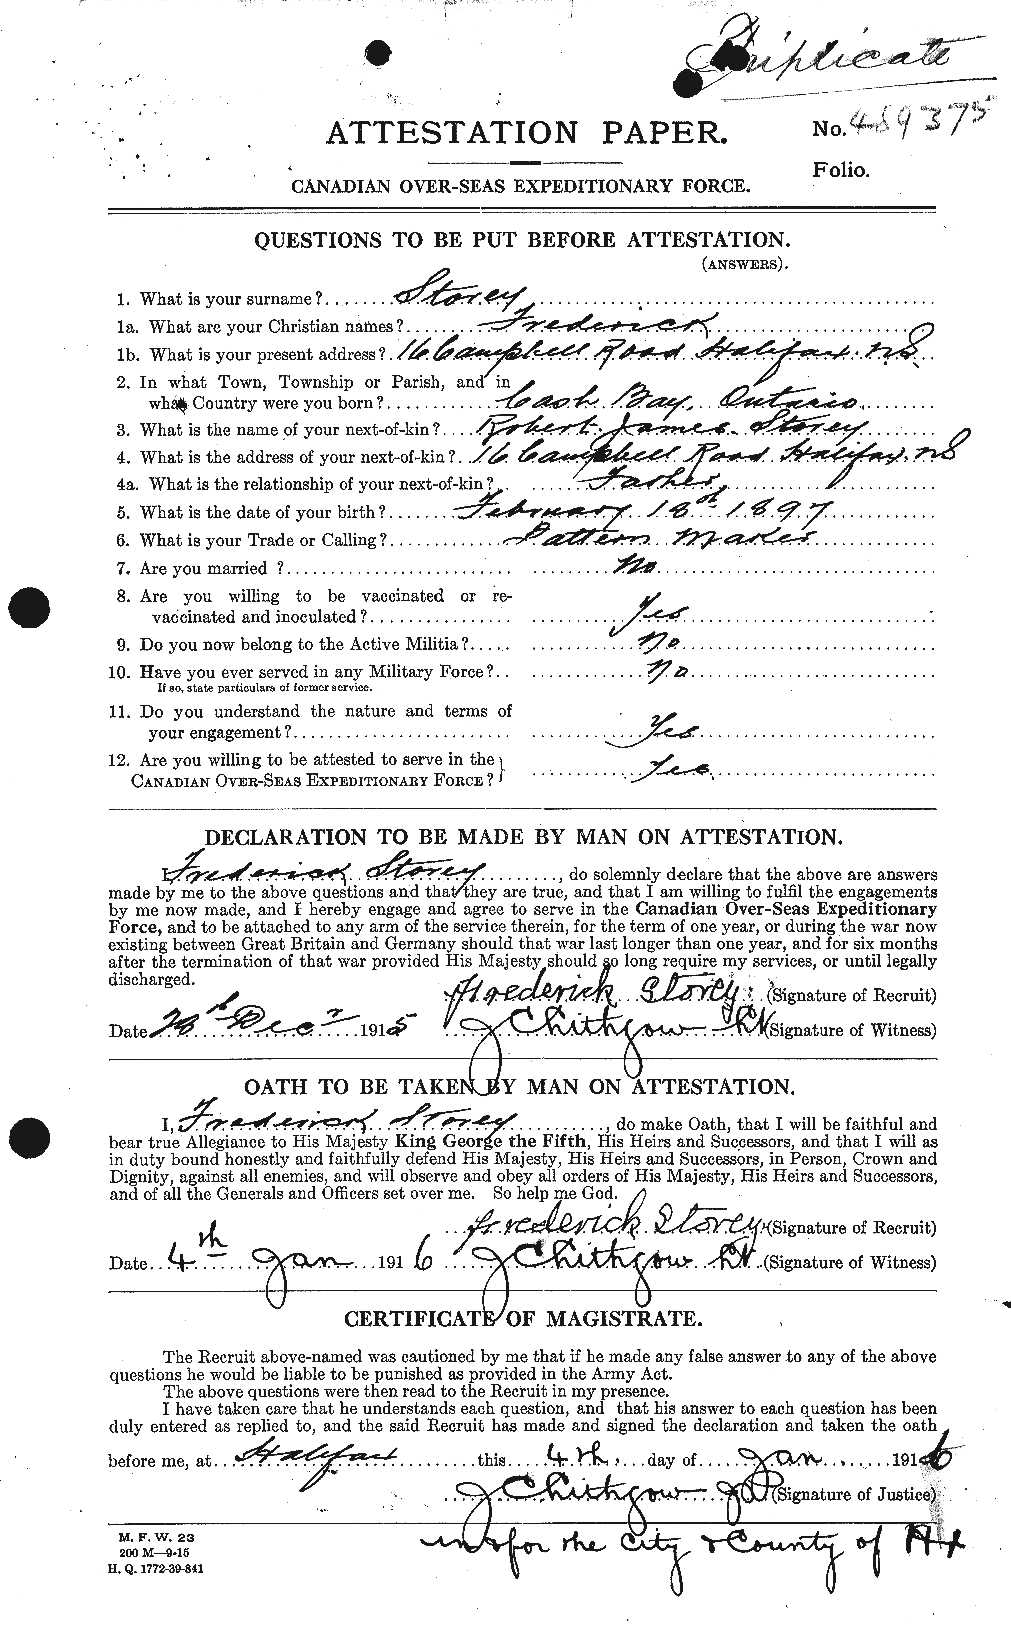 Triplicate
ATTESTATION PAPER.
No. 489375
Folio.
CANADIAN OVER-SEAS EXPEDITIONARY FORCE.
QUESTIONS TO BE PUT BEFORE ATTESTATION.
(ANSWERS).
1. What is your surname?........ Storey
1a. What are your Christian names?........ Frederick
1b. What is your present address? 16 Campbell Road Halifax. NS
2. In what Town, Township or Parish, and in
what Country were you born?............ Cash Bay, Ontario
3. What is the name of your next-of-kin?.... Robert James Storey
4. What is the address of your next-of-kin?.. 16 Campbell Road Halifax. NS
4a. What is the relationship of your next-of-kin?.. Father
5. What is the date of your birth?........ February 18th 1897
6. What is your Trade or Calling?............. Pattern Maker
7. Are you married ?......................... No
8. Are you willing to be vaccinated or re-
vaccinated and inoculated?................ Yes
9. Do you now belong to the Active Militia?..... No
10. Have you ever served in any Military Force?.. No
If so, state particulars of former service.
11. Do you understand the nature and terms of
your engagement?........................ Yes
12. Are you willing to be attested to serve in the
CANADIAN OVER-SEAS EXPEDITIONARY FORCE? Yes
DECLARATION TO BE MADE BY MAN ON ATTESTATION.
I, Frederick Storey.........., do solemnly declare that the above are answers
made by me to the above questions and that they are true, and that I am willing to fulfil the engagements
by me now made, and I hereby engage and agree to serve in the Canadian Over-Seas Expeditionary
Force, and to be attached to any arm of the service therein, for the term of one year, or during the war now
existing between Great Britain and Germany should that war last longer than one year, and for six months
after the termination of that war provided His Majesty should so long require my services, or until legally
discharged.
Frederick Storey. (Signature of Recruit)
Date 28th Decr 1915 J Chithgow Lt (Signature of Witness)
OATH TO BE TAKEN BY MAN ON ATTESTATION.
I, Frederick Storey.........., do make Oath, that I will be faithful and
bear true Allegiance to His Majesty King George the Fifth, His Heirs and Successors, and that I will as
in duty bound honestly and faithfully defend His Majesty, His Heirs and Successors, in Person, Crown and
Dignity, against all enemies, and will observe and obey all orders of His Majesty, His Heirs and Successors,
and of all the Generals and Officers set over me. So help me God.
Frederick Storey. (Signature of Recruit)
Date 4th Jan 1916 J Chithgow Lt (Signature of Witness)
CERTIFICATE OF MAGISTRATE.
The Recruit above-named was cautioned by me that if he made any false answer to any of the above
questions he would be liable to be punished as provided in the Army Act.
The above questions were then read to the Recruit in my presence.
I have taken care that he understands each question, and that his answer to each question has been
duly entered as replied to, and the said Recruit has made and signed the declaration and taken the oath
before me, at Halifax this 4th day of Jan 1916
J Chithgow JP (Signature of Justice)
in & for the City & County of Hx
M. F. W. 23
200 M—9-15
H. Q. 1772-39-841